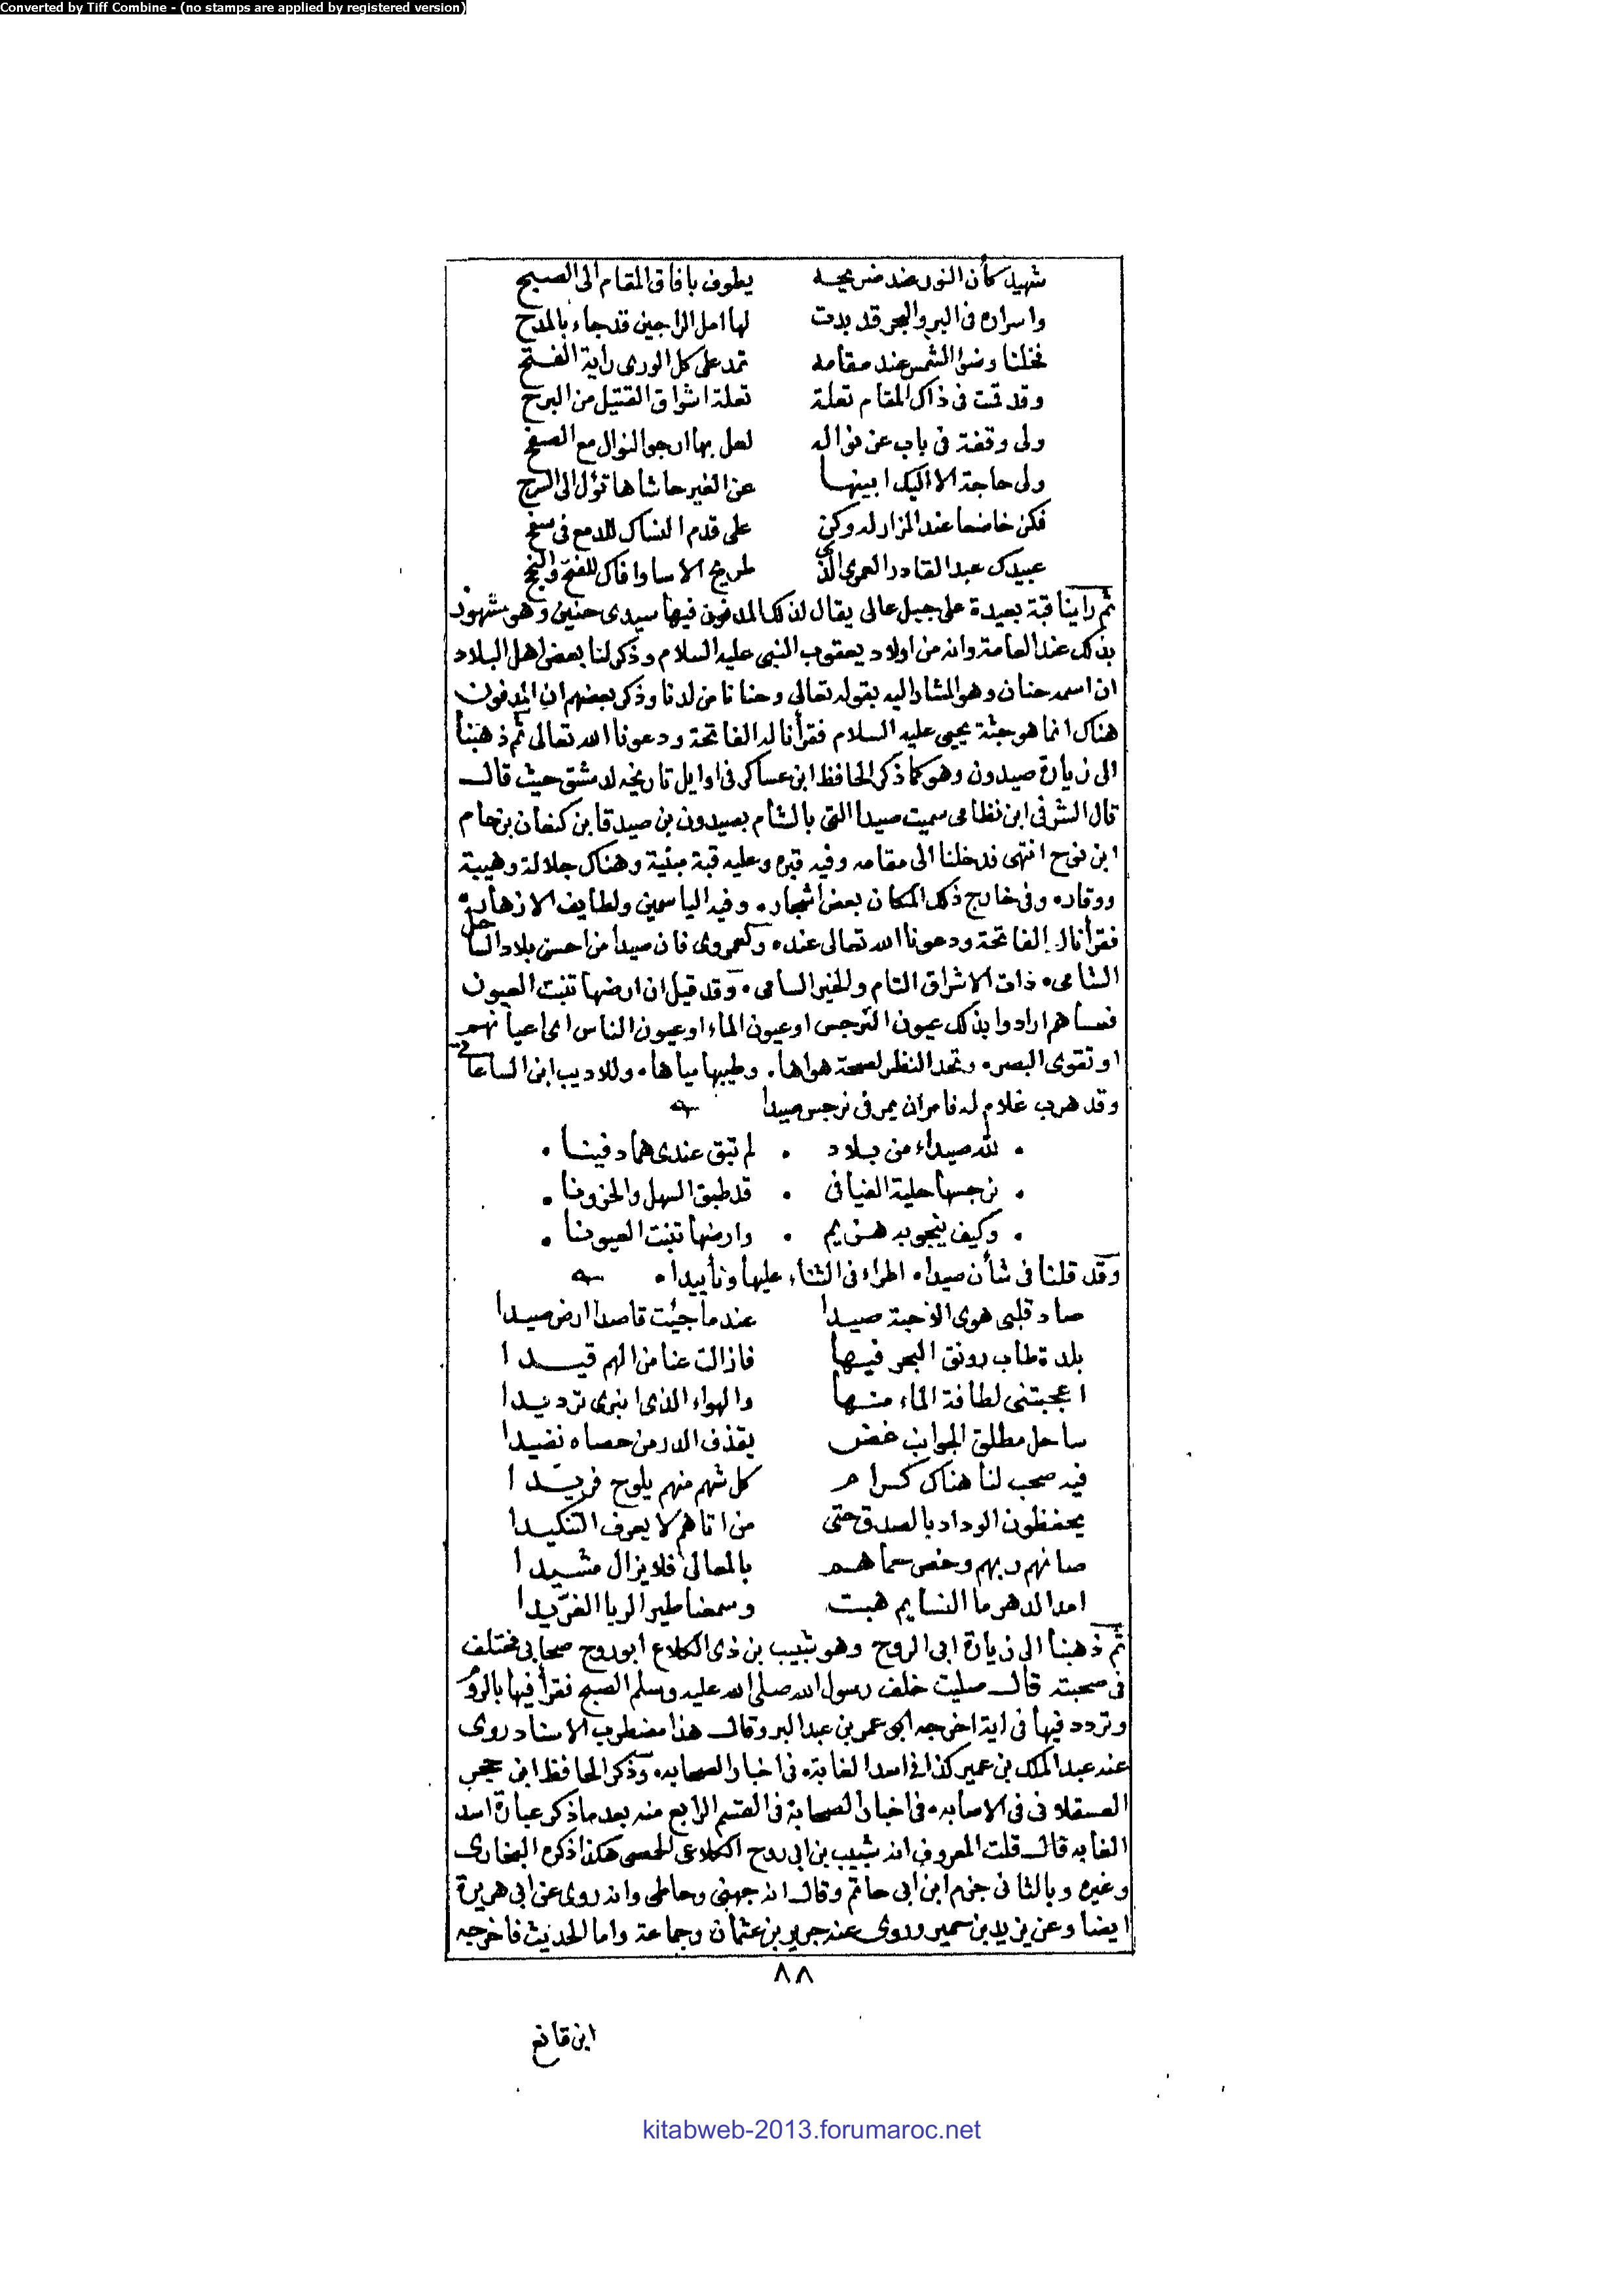 Converted by Tiff Combine - (no stamps are applied by registered version)
شهيد كأن النور عند ضريحه يطوف بافاق المقام الى الصبح
واسراره فى البر والبحر قد بدت لها امل الراجين قد جاء بالمدح
فخلنا وضؤ الشمس عند مقامه تمد على كل الورى راية الفتح
وقد قمت فى ذاك المقام تعلة تعلة اشواق القتيل من البرح
ولى وقفة فى باب عن نواله لعل بها ارجو النوال مع الصفح
ولى حاجة الا اليك ابينها عن الغير حاشاها تؤل الى الشرح
فكن خاضعا عند المزار له وكن على قدم النساك للدمع فى سفح
عبيدك عبد القادر العمرى الذى طريح الاسا وافاك للفتح والنجح
ثم راينا قبة بعيدة على جبل عالى يقال لذلك المدفون فيها سيدى حنين وهو مشهور
بذلك عند العامة وانه من اولاد يعقوب النبى عليه السلام وذكر لنا بعض اهل البلاد
ان اسمه حنان وهو المشار اليه بقوله تعالى وحنانا من لدنا وذكر بعضهم ان المدفون
هناك انما هو جثة يحيى عليه السلام فقرأنا له الفاتحة ودعونا الله تعالى ثم ذهبنا
الى زيارة صيدون وهو كما ذكر الحافظ ابن عساكر فى اوايل تاريخه لدمشق حيث قال
قال الشرفى ابن نظامى سميت صيدا التى بالشام بصيدون بن صيدقا بن كنعان بن حام
ابن نوح انتهى فدخلنا الى مقامه وفيه قبره وعليه قبة مبنية وهناك جلالة وهيبة
ووقاره وفى خارج ذلك المكان بعض اشجاره وفيه الياسمين ولطايف الازهاره
فقرأنا له الفاتحة ودعونا الله تعالى عنده ولعمرى فان صيدا من احسن بلاد الساحل
الشامى ذات الاشراق التام والخير السامى وقد قيل ان ارضها تنبت العيون
فعساهم ارادوا بذلك عيون النرجس او عيون الماء او عيون الناس اى اعيانهم
او تقوى البصر وتحد النظر لصحة هواها وطيبها مياها وللاديب ابن الساعاتى
وقد هرب غلام له فامر ان يمر فى نرجس صيدا
لله صيداء من بلاد لم تبق عندى هما دفينا
نرجسها حلية الفيافى قد طبق السهل والحزونا
وكيف ينجو به هزيم وارضها تنبت العيونا
وقد قلنا فى شأن صيدا اطراء فى الثناء عليها وتأييدا
صاد قلبى هوى الاحبة صيدا عندما جئت قاصدا ارض صيدا
بلدة طاب رونق البحر فيها فازالت عنا من الهم قيدا
اعجبتنى لطافة الماء منها والهواء الذى انبرى ترديدا
ساحل مطلق الجوانب غض يقذف الدر من حصاه نضيدا
فيه صحب لنا هناك كرام كل شهم منهم يلوح فريدا
يحفظون الوداد بالصدق حتى من اتاهم لا يعرف التنكيدا
صانهم ربهم وخص حماهم بالمعالى فلا يزال مشيدا
امد الدهر ما النسايم هبت وسمعنا طير الربا الغرّيدا
ثم ذهبنا الى زيارة ابى الروح وهو شبيب بن ذى الكلاع ابو روح صحابى مختلف
فى صحبته قال صليت خلف رسول الله صلى الله عليه وسلم الصبح فقرأ فيها بالروم
وتردد فيها فى اية اخرجه ابو عمر بن عبد البر وقال هذا مضطرب الاسناد روى
عنه عبد الملك بن عمير كذا فى اسد الغابة فى اخبار الصحابه وذكر الحافظ ابن حجر
العسقلانى فى الاصابه فى اخبار الصحابة فى القسم الرابع منه بعد ما ذكر عبارة اسد
الغابه قال قلت المعروف انه شبيب بن ابى روح الكلاعى الحمصى هكذا ذكره البخارى
وغيره وبالثانى جزم ابن ابى حاتم وقال انه جهنى وحاطى وانه روى عن ابى هريرة
ايضا وعن يزيد بن سمير وروى عنه جرير بن عثمان وجماعة واما الحديث فاخرجه
٨٨
ابن قانع
kitabweb-2013.forumaroc.net